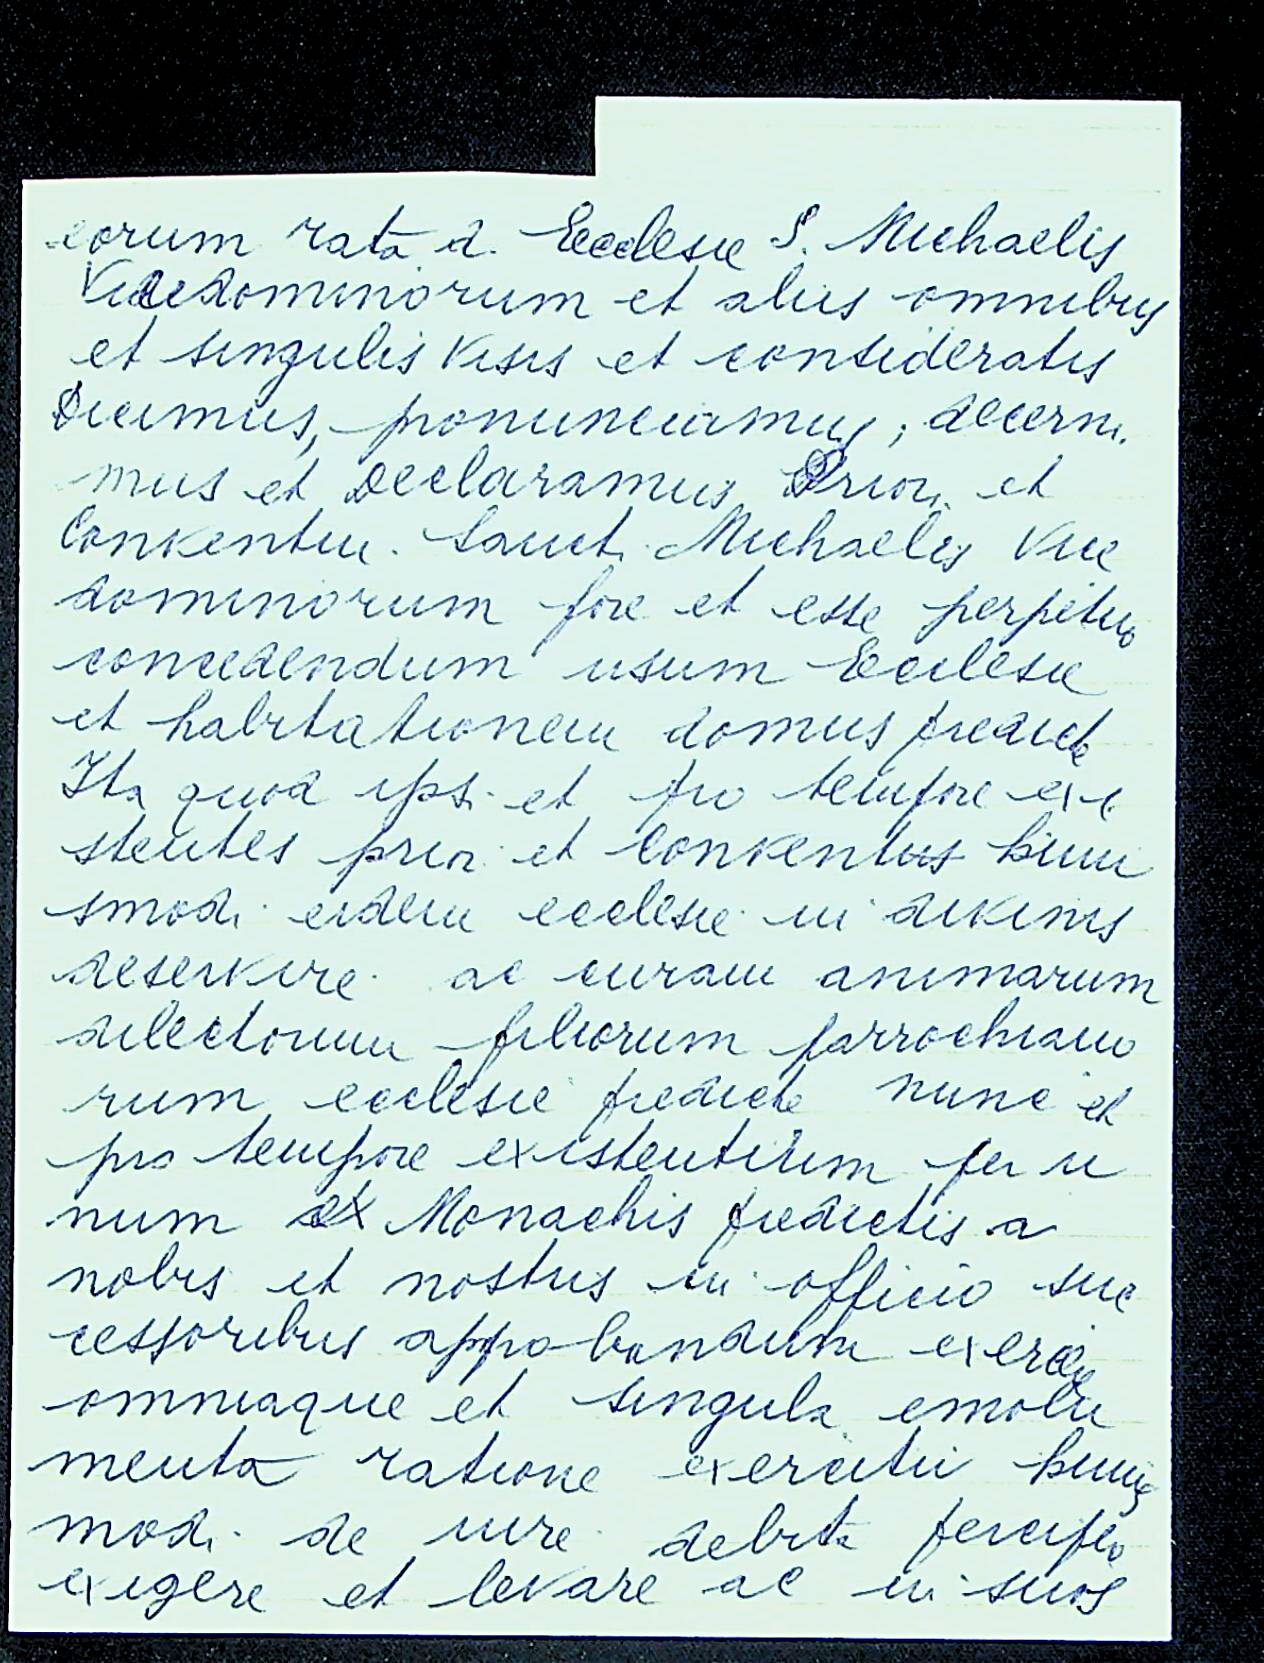 eorum rata d. Ecclesie S. Michaelis
Vicedominorum et aliis omnibus
et singulis visis et consideratis
Dicimus, pronunciamus, decerni
mus et declaramus Priori et
Conventui Sancti Michaelis Vice
dominorum fore et esse perpetuo
concedendum usum Ecclesie
et habitationem domus predicte
Ita quod ipsi et pro tempore exi
stentes prior et conventus huiu
smodi eidem ecclesie in divinis
deservire ac curam animarum
dilectorum filiorum parrochiano
rum ecclesie predicte nunc et
pro tempore existentium per u
num ex Monachis predictis a
nobis et nostris in officio suc
cessoribus approbandum exercere
omniaque et singula emolu
menta ratione exercitii huius
modi de iure debita percipere
exigere et levare ac in suos